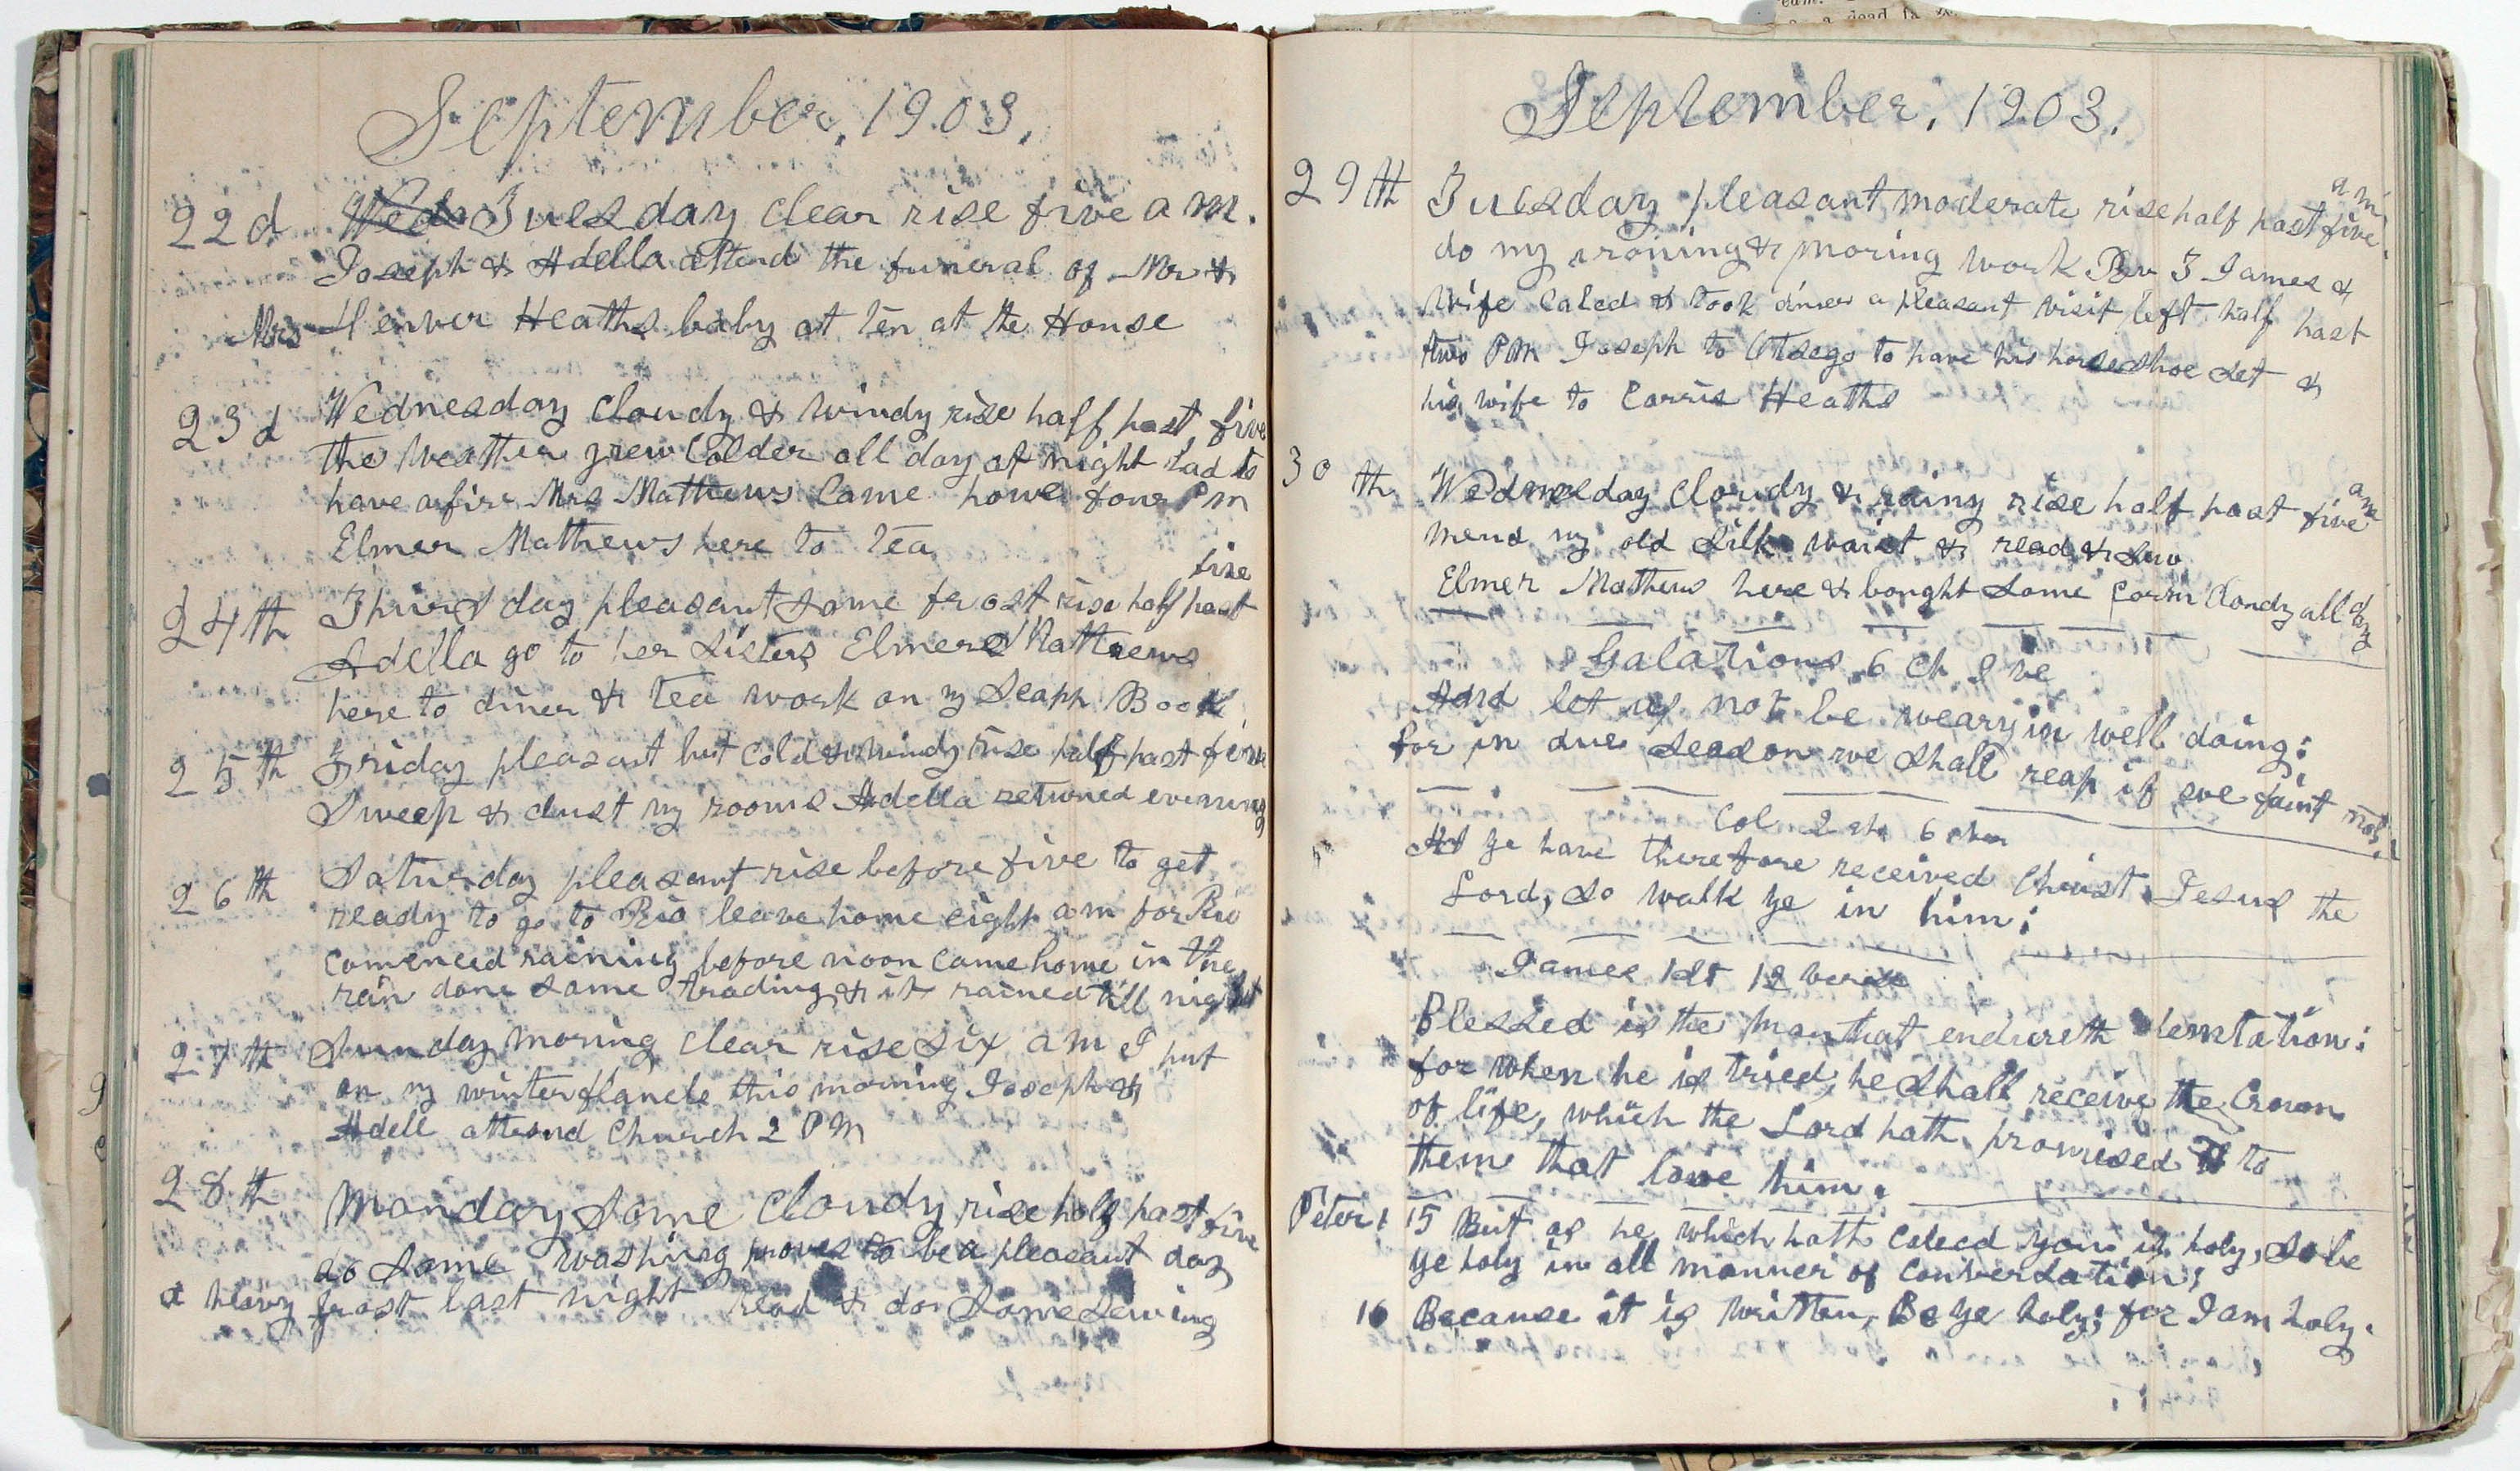 September, 1903.
22d Wed Tuesday clear rise five a m.
Joseph & Adella attend the funeral of Mr &
Mrs Denver Heaths baby at ten at the House
23d Wednesday cloudy & windy rise half past five
the weather grew colder all day at night had to
have a fire Mrs Mathews came home four P m
Elmer Mathews here to tea
24th Thursday pleasant some frost rise half past five
Adella go to her sisters Elmere Mathews
here to diner & tea work on my Scapp Book
25th Friday pleasant but cold & windy rise half past five
Sweep & dust my rooms Adella returned evening
26th Saturday pleasant rise before five to get
ready to go to Rio leave home eight a m for Rio
comenced raining before noon came home in the
rain done some trading & it rained till night
27th Sunday moring clear rise six a m I put
on my winter flanels this morning Joseph &
Adell attend Church 2 PM
28th Monday some cloudy rise half past five
do some washing proves to be a pleasant day
a heavy frost last night read & do some sewing
September, 1903.
29th Tuesday pleasant moderate rise half past five a m.
do my ironing & moring work Rev J James &
wife caled & took diner a pleasant visit left half past
two PM Joseph to Otsego to have his horse shoe set &
his wife to Carris Heaths
30th Wednesday cloudy & rainy rise half past five a m
mend my old silk waist & read & sew
Elmer Mathews here & bought some corn cloudy all day
Galations 6 ch 9 ve
And let us not be weary in well doing:
for in due season we shall reap if we faint not.
Col 2 ch 6 ver
As ye have therefore received Christ Jesus the
Lord, so walk ye in him:
James 1st 12 verse
Blessed is the man that endureth temtation:
for when he is tried, he shall receive the Crown
of life, which the Lord hath promised to
them that love him.
Peter 1 15 But as he which hath caleed you is holy, so be
ye holy in all manner of conversation;
16 Because it is written, Be ye holy; for I am holy.